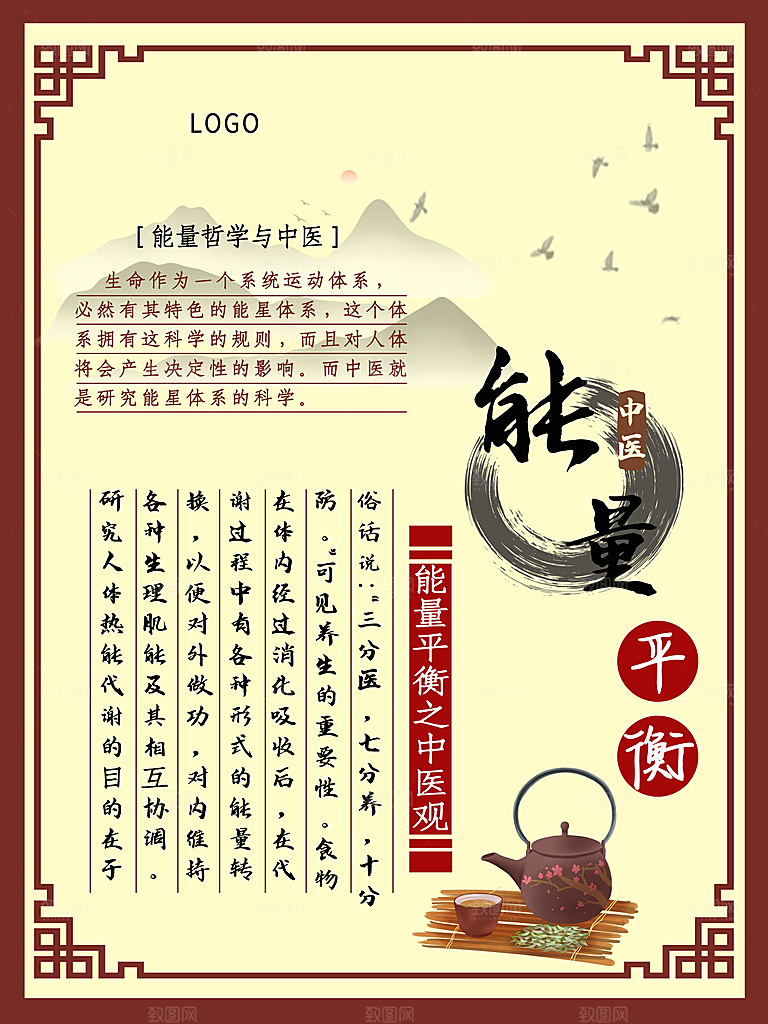 LOGO
[ 能量哲学与中医 ]
生命作为一个系统运动体系，
必然有其特色的能星体系，这个体
系拥有这科学的规则，而且对人体
将会产生决定性的影响。而中医就
是研究能星体系的科学。
能量
中医
平衡
能量平衡之中医观
俗话说：“三分医，七分养，十分
防。”可见养生的重要性。食物
在体内经过消化吸收后，在代
谢过程中有各种形式的能量转
换，以便对外做功，对内维持
各种生理肌能及其相互协调。
研究人体热能代谢的目的在于
致图网